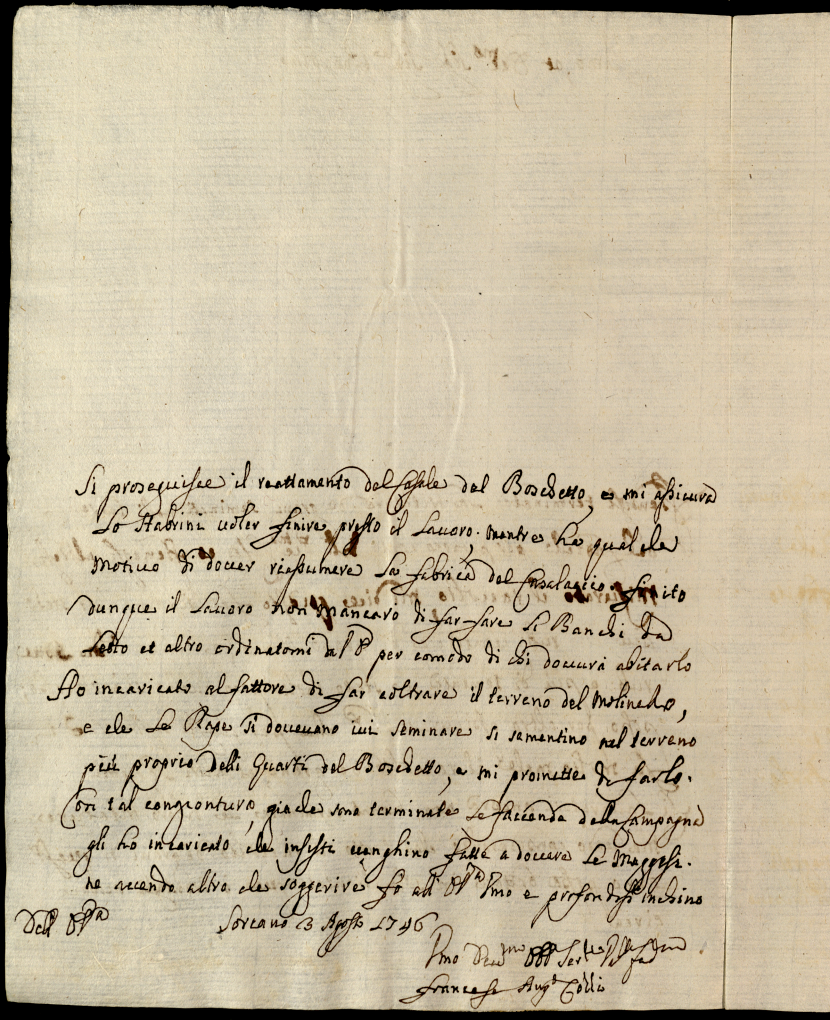 Si proseguisce il reattamento del Casale del Boschetto, e mi assicura
Lo Stabrini voler finire presto il Lavoro, mentre ha qualche
Motivo di dover riassumere La fabrica del Casalaccio. finito
dunque il Lavoro non mancarò di far fare Li Banchi da
Letto et altro ordinatomi dal per comodo di chi doverà abitarlo
Ho incaricato al fattore di far coltrare il terreno del Molinello,
e che Le Rape si dovevano ivi seminare si sementino nel terreno
più proprio delli Quarti del Boschetto, e mi promette di farlo.
Con tal congiontura, giache sono terminate Le faccende della Campagna
gli ho incaricato che insisti venghino fatte a dovere Le Maggesi.
ne avendo altro che soggerire fo all' Pmo e profondiss inchino
Dell' Soreano 3 Agosto 1746
Francesco Aug